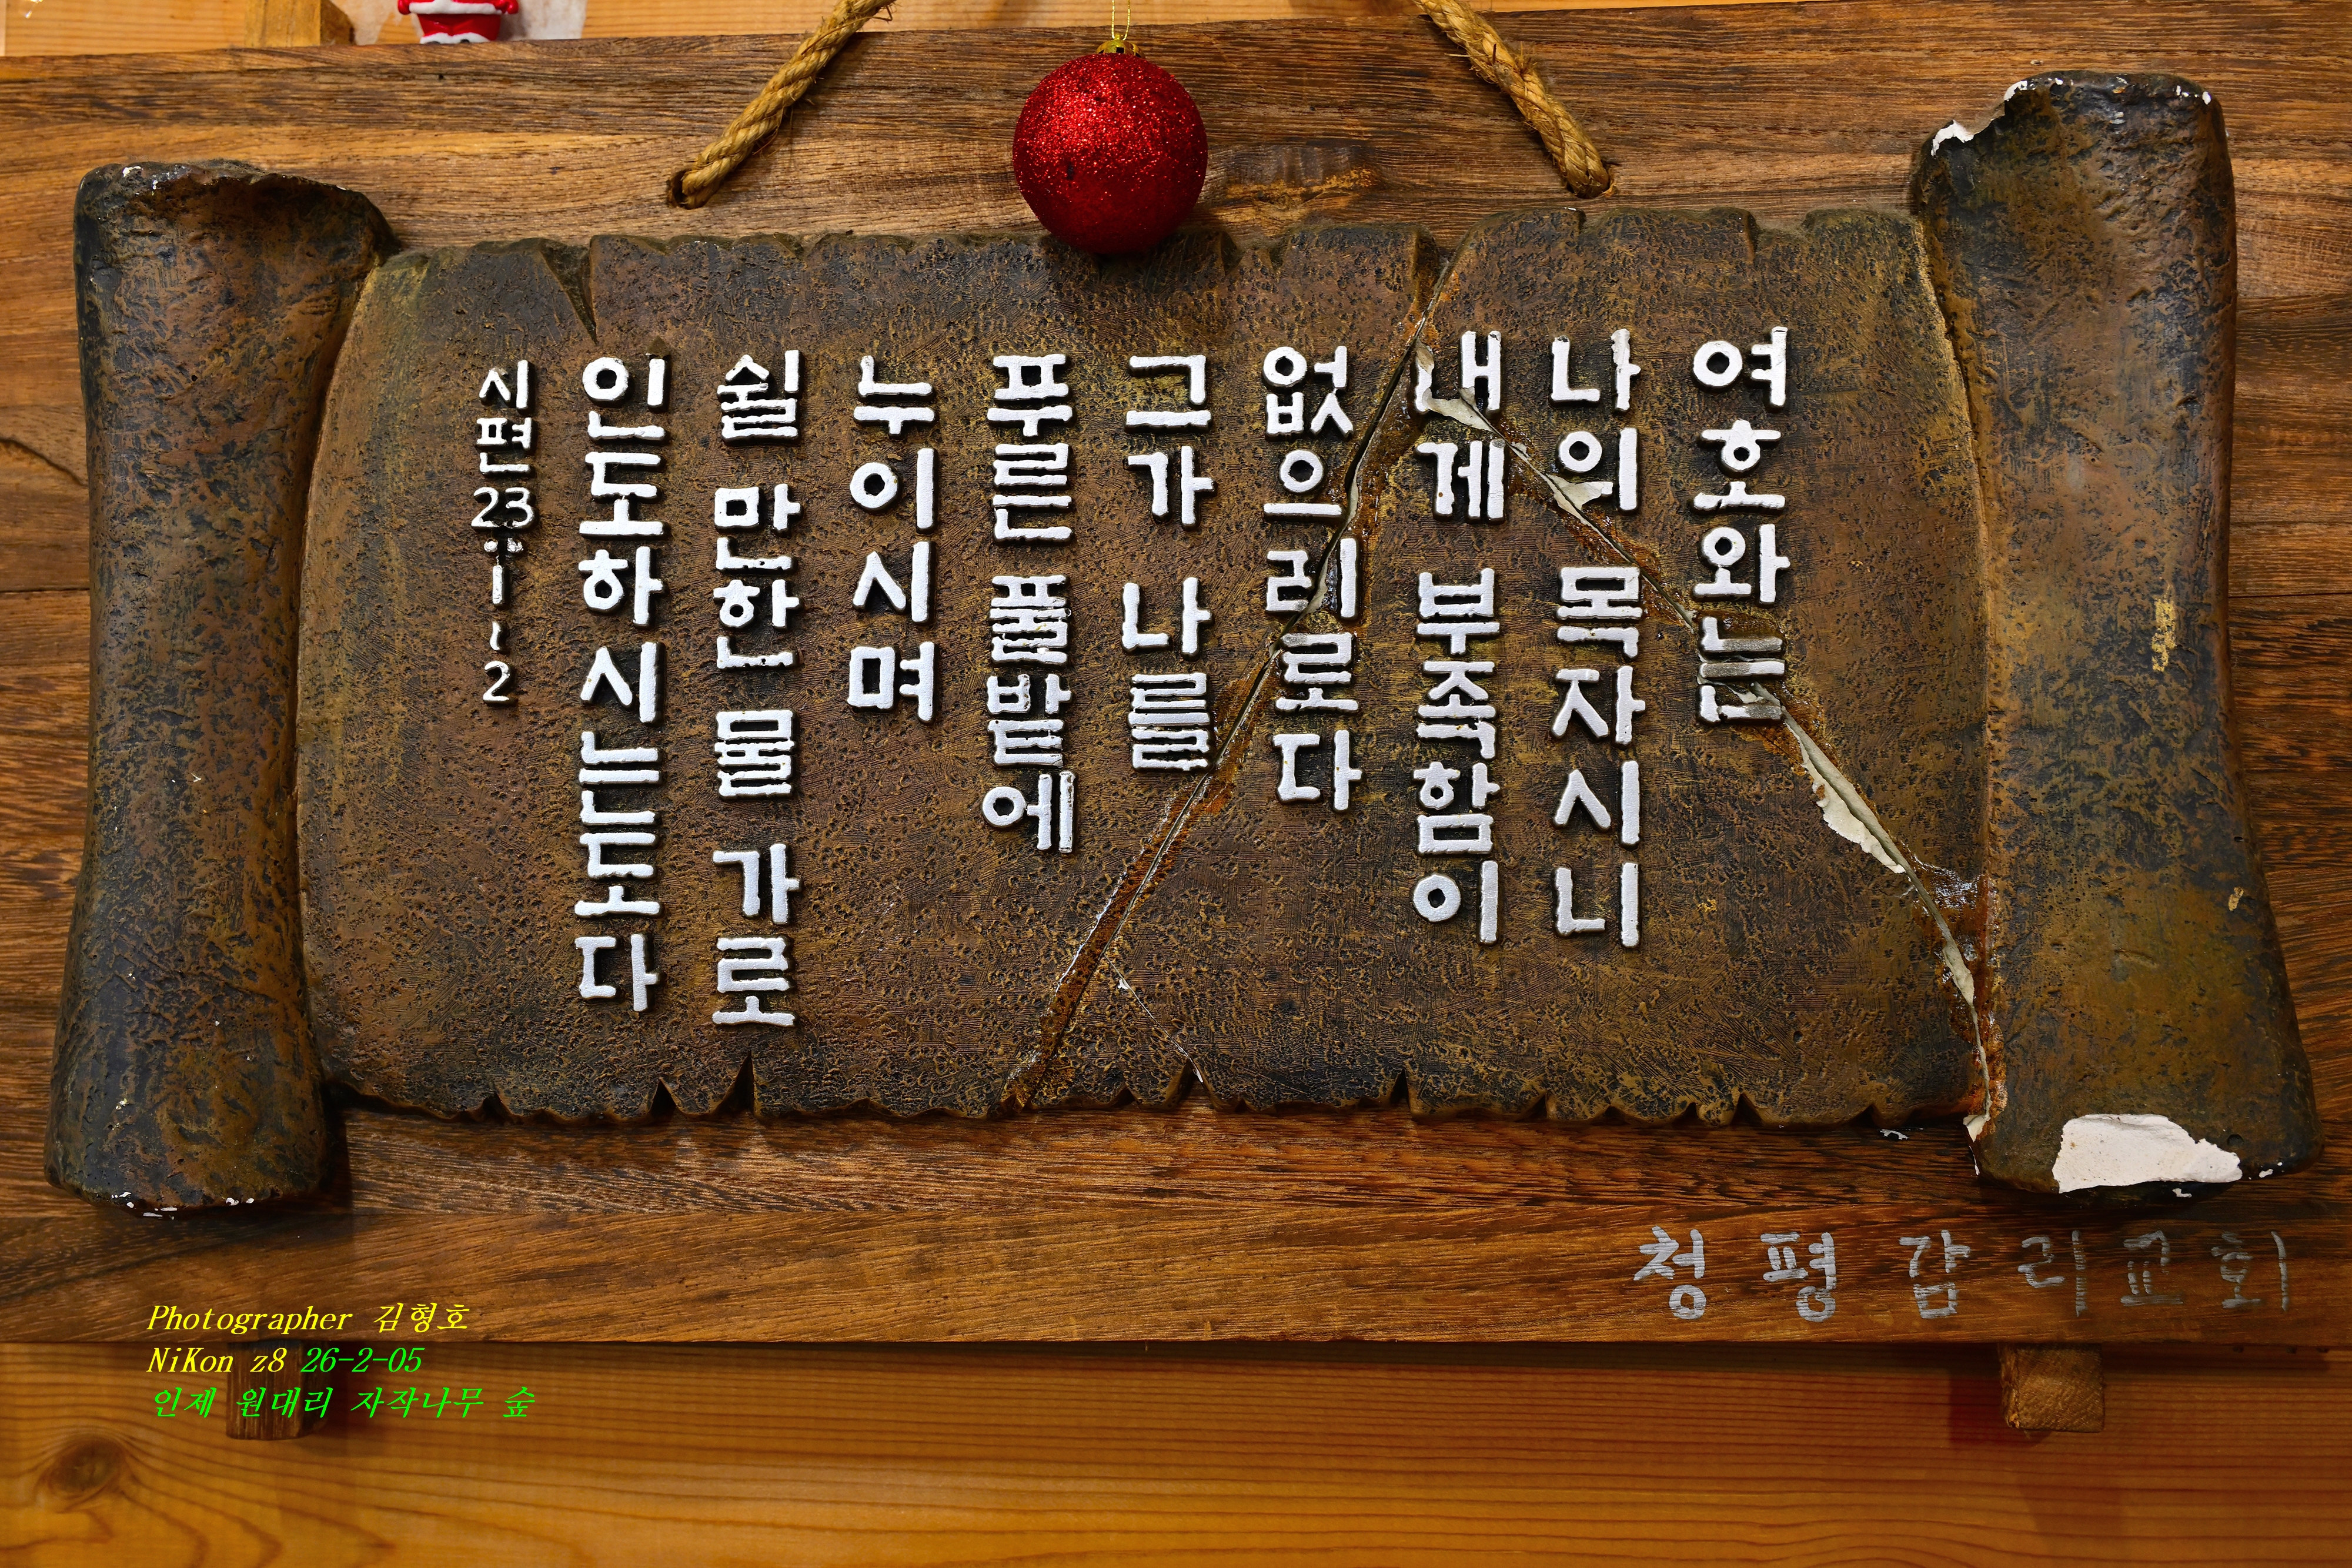 여호와는
나의 목자시니
내게 부족함이
없으리로다
그가 나를
푸른 풀밭에
누이시며
쉴 만한 물 가로
인도하시는도다
시편 23:1~2
청평감리교회
Photographer 김형호
NiKon z8 26-2-05
인제 원대리 자작나무 숲